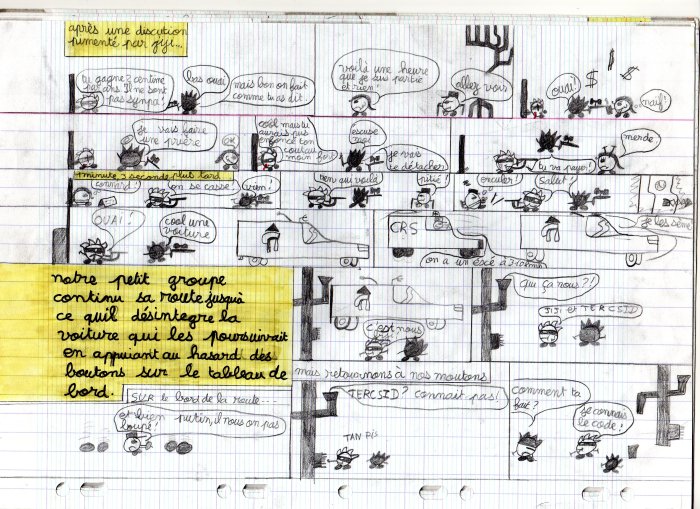 après une discution
pimenté par jiji...
tu gagne 2 centime
par ans. Il ne sont
pas sympa!
bas ouai
mais bon on fait
comme tu as dit.
voilà une heure
que je suis partie
et rien!
allez vous
ouai!
$
$
$
naif!
je vais faire
une prière
OK
cool mais tu
aurais pus
enfoncé ton
couteau
moin fort
escuse
moi
je vais
le détacher
tu va payer!
merde
1 minute, 3 seconde plus tard
connard!
on se casse!
vien!
rien qui voilà
pitié!
enculer!
Sallet!
OUAI!
cool une
voiture
CRS
on a un éxcé à 310 km
je les sème
notre petit groupe
continu sa route jusqu'à
ce quil désintegre la
voiture qui les poursuivait
en appuiant au hasard des
boutons sur le tableau de
bord.
c'est nous
Qui ça nous?!
JIJI et TERCSID
SUR le bord de la route...
et bien putin, il nous on pas
loupé!
mais retournons à nos moutons
TERCSID? connait pas!
TAN PIS
comment ta
fait?
je connais
le code!